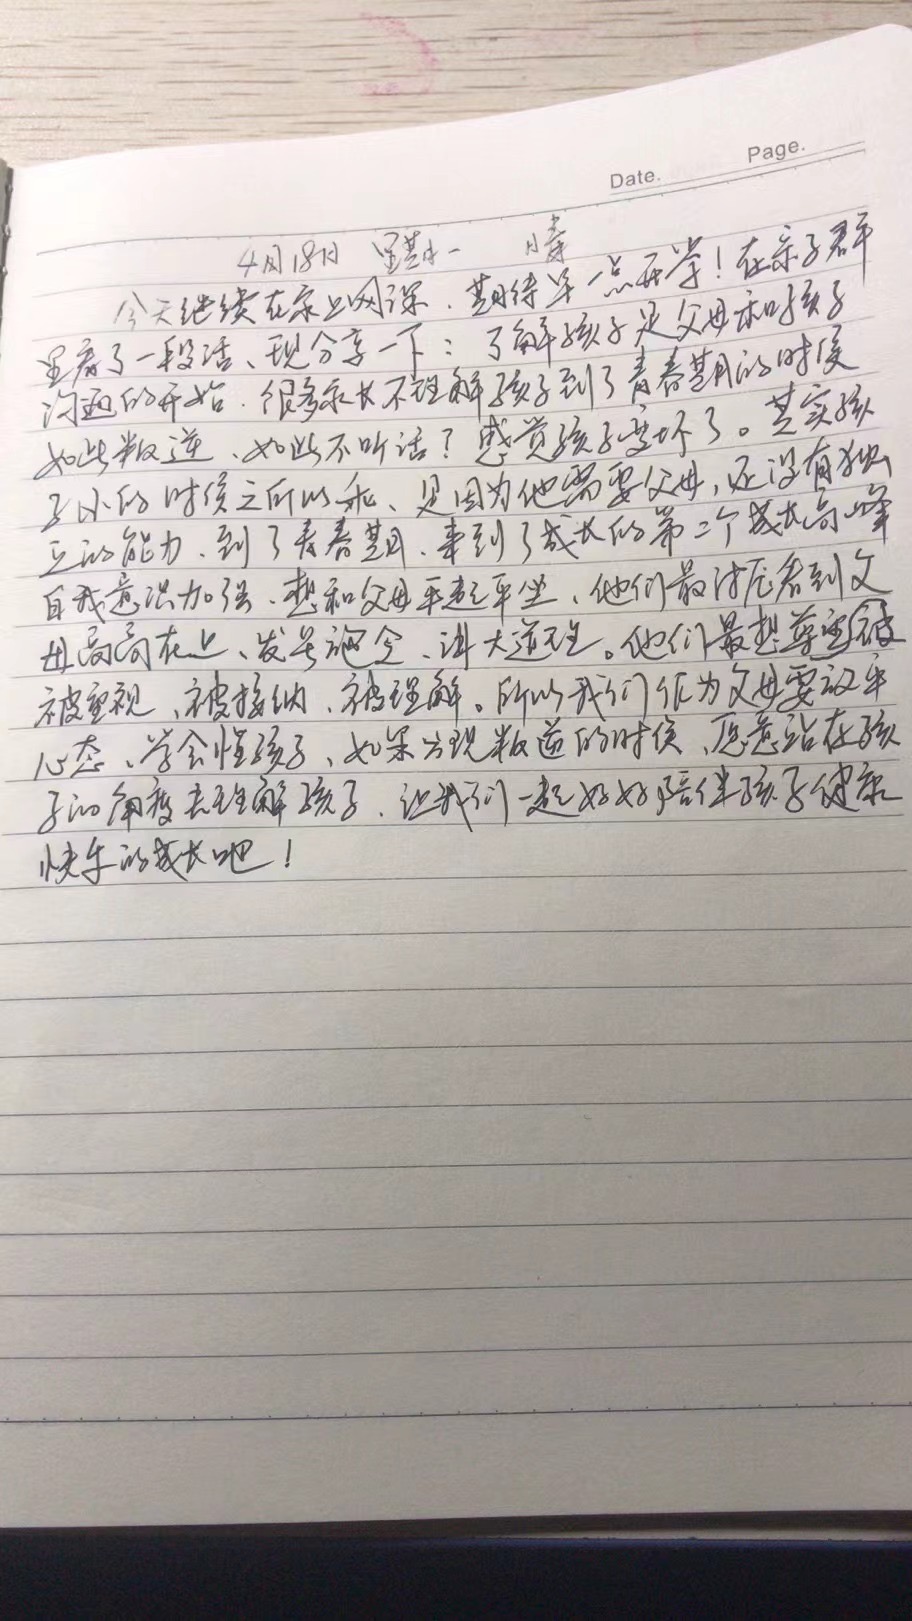 Date. Page.
4月18日 星期一 晴
今天继续在家上网课，期待早一点开学！在亲子群
里看了一段话、现分享一下：了解孩子是父母和孩子
沟通的开始．很多家长不理解孩子到了青春期的时候
如此叛逆、如此不听话？感觉孩子变坏了。其实孩
子小的时候之所以乖、是因为他需要父母，还没有独
立的能力、到了青春期、来到了成长的第二个成长高峰
自我意识加强、想和父母平起平坐、他们最讨厌看到父
母高高在上、发号施令、讲大道理。他们最想尊重被
被重视、被接纳、被理解。所以我们作为父母要放平
心态、学会懂孩子、如果出现叛逆的时候、愿意站在孩
子的角度去理解孩子．让我们一起好好陪伴孩子健康
快乐的成长吧！